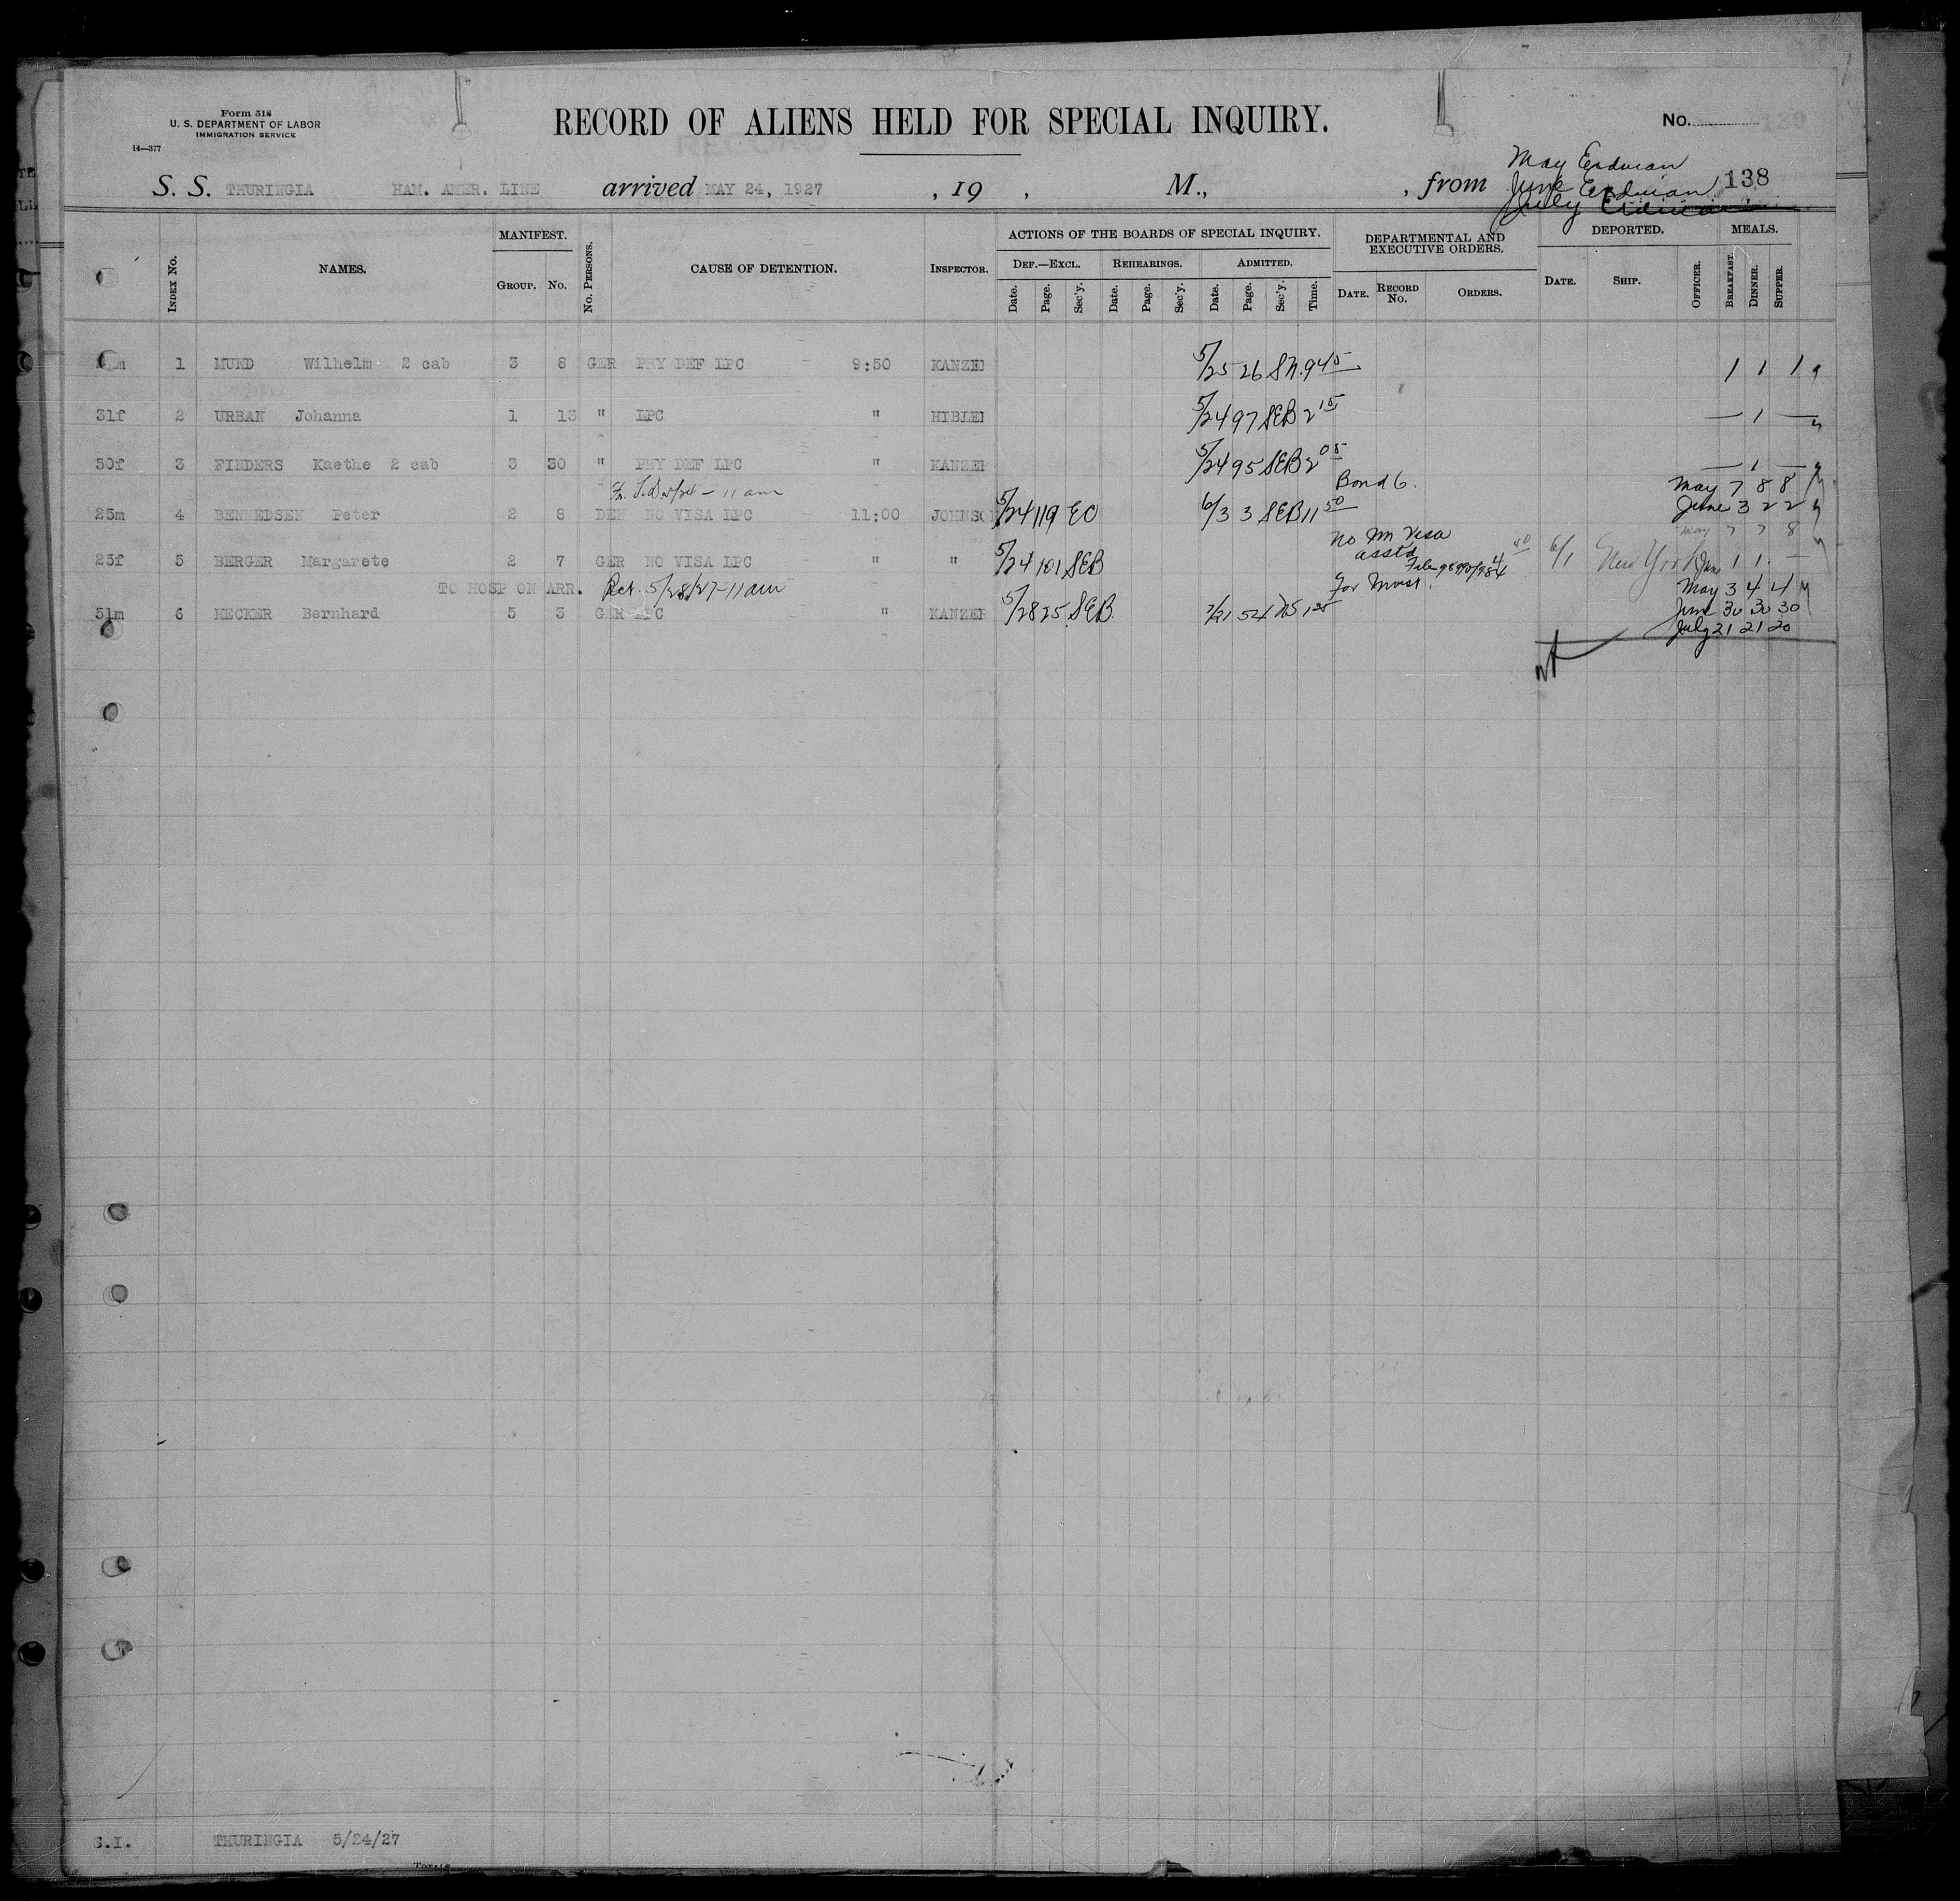 Form 518
U. S. DEPARTMENT OF LABOR
IMMIGRATION SERVICE
14—377
RECORD OF ALIENS HELD FOR SPECIAL INQUIRY.
No. 139
May Erdman
June Erdman
July Erdman
138
S. S. THURINGIA HAM. AMER. LINE arrived MAY 24, 1927 , 19 , M., , from
INDEX NO. NAMES. MANIFEST. GROUP. NO. NO. PERSONS. CAUSE OF DETENTION. INSPECTOR. ACTIONS OF THE BOARDS OF SPECIAL INQUIRY. DEPARTMENTAL AND EXECUTIVE ORDERS. DEPORTED. MEALS.
DEF.—EXCL. REHEARINGS. ADMITTED.
Date. Page. Sec'y. Date. Page. Sec'y. Date. Page. Sec'y. Time. DATE. RECORD NO. ORDERS. DATE. SHIP. OFFICER. BREAKFAST. DINNER. SUPPER.
1 MUND Wilhelm 2 cab 3 8 GER PHY DEF LPC 9:50 KANZER 5/25 26 9 45 1 1 1
31f 2 URBAN Johanna 1 13 " LPC " HIBLER 5/24 97 SEB 2 15 — 1 —
50f 3 FINDERS Kaethe 2 cab 3 30 " PHY DEF LPC " KANZER 5/24 95 SEB 2 05 — 1 —
11 am Bond 6. May 7 8 8
25m 4 BENNEDSEN Peter 2 8 DEN NO VISA LPC 11:00 JOHNSO 5/24 119 EO 6/3 3 SEB 11 50 June 3 2 2
No Im Visa May 7 7 8
asstd
25f 5 BERGER Margarete 2 7 GER NO VISA LPC " " 5/24 101 SEB File 6/1 New York June 1 1 —
TO HOSP ON ARR. Ret. 5/28/27–11 am For May 3 4 4
51m 6 HECKER Bernhard 5 3 GER LPC " KANZER 5/28 25 SEB 7/21 54 1 35 June 30 30 30
July 21 21 20
S.I. THURINGIA 5/24/27
TOTALS